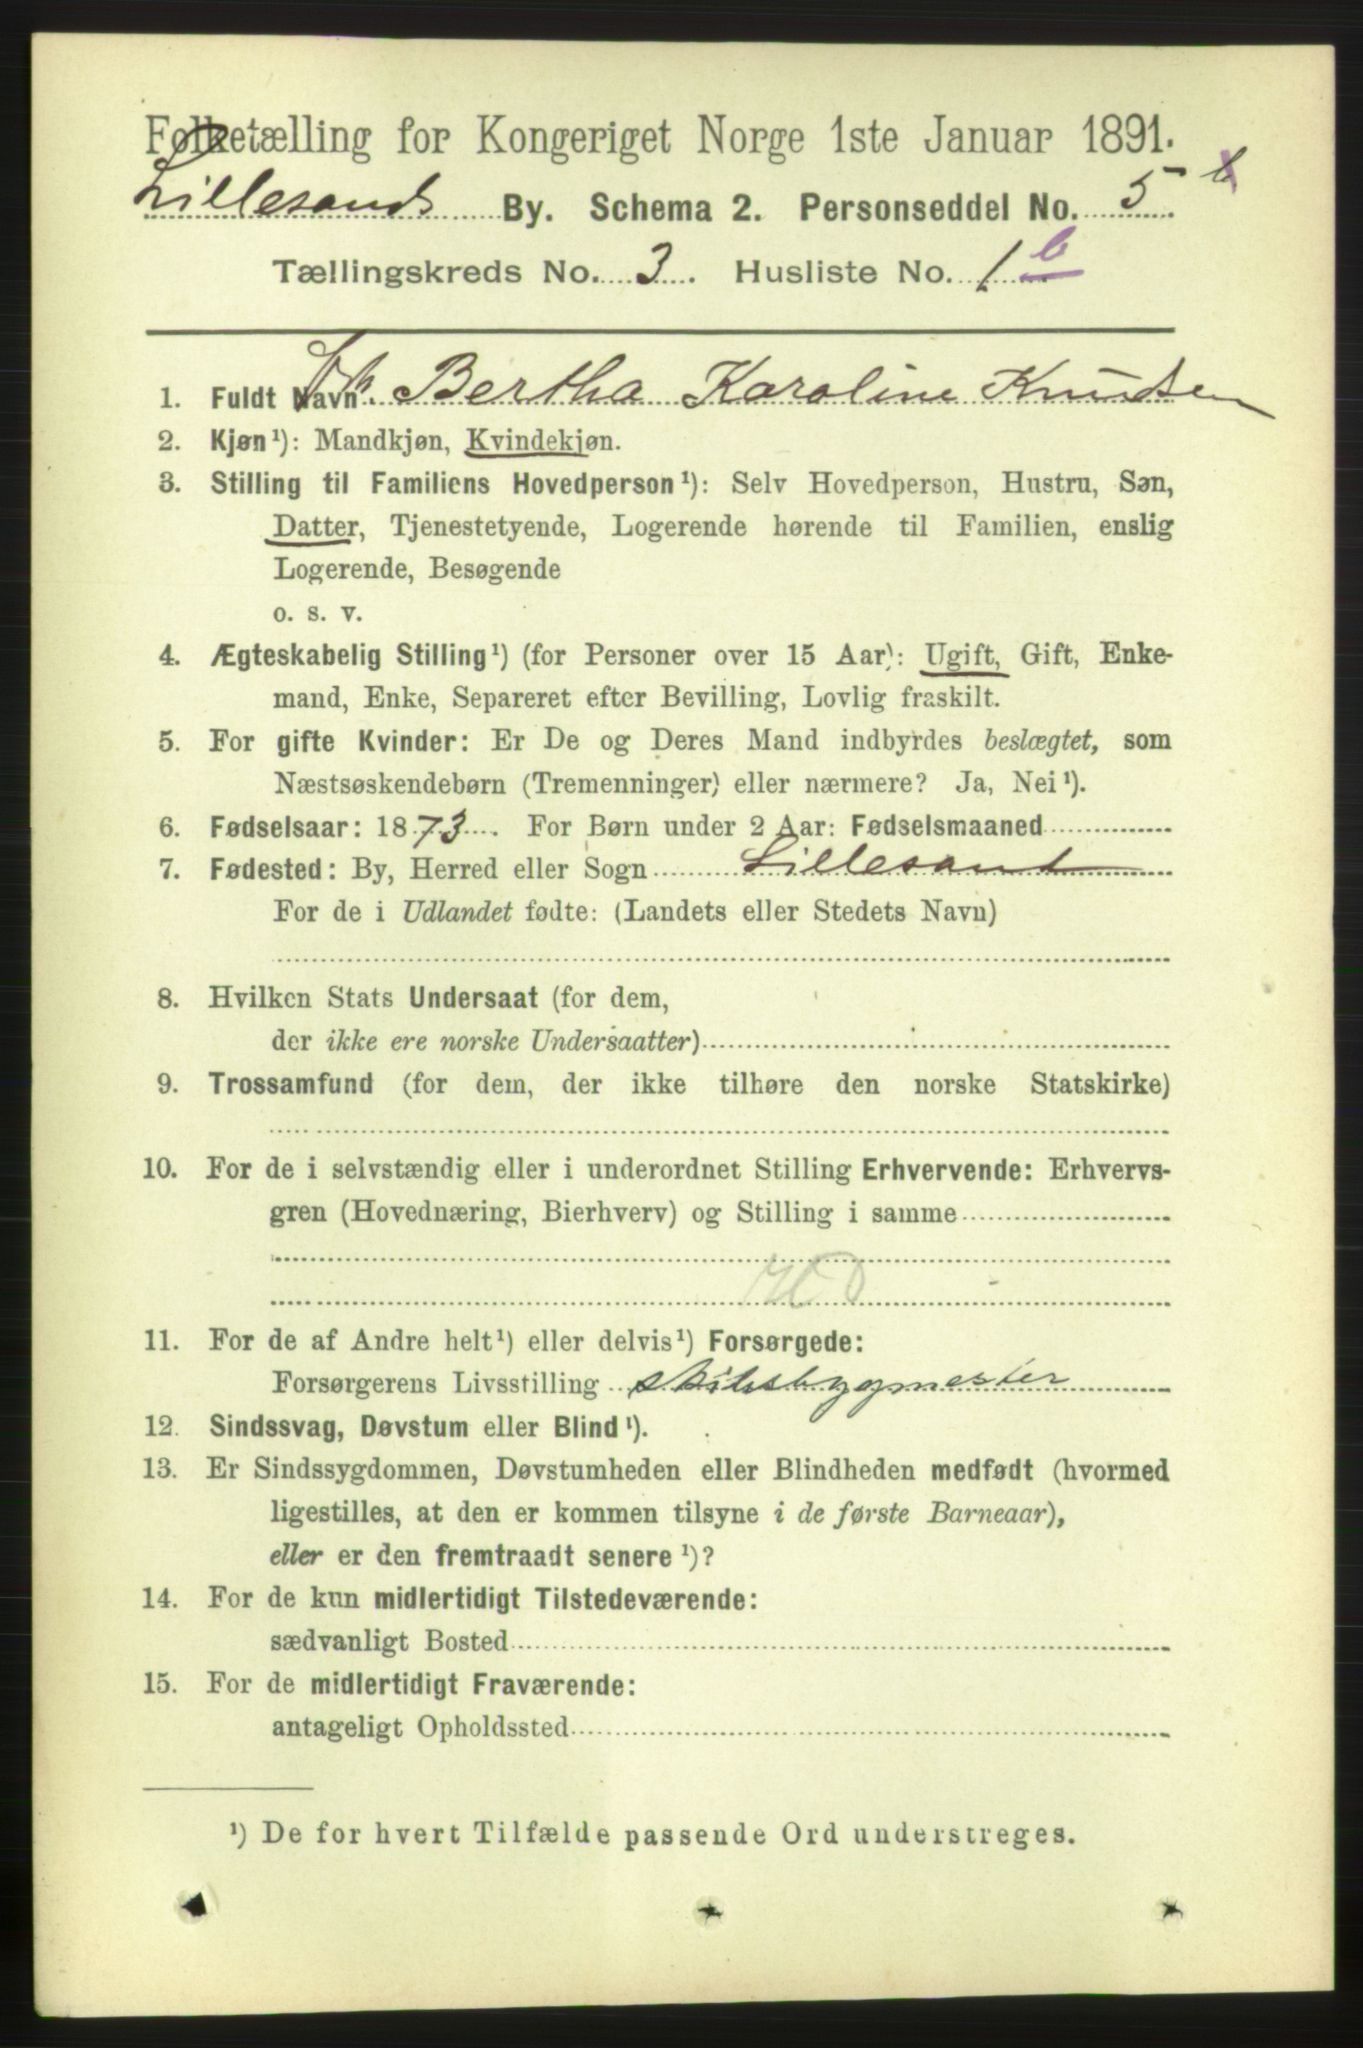 Folketælling for Kongeriget Norge 1ste Januar 1891.
Lillesands By. Schema 2. Personseddel No. 5 b
Tællingskreds No. 3. Husliste No. 1 b
1. Fuldt Navn Bertha Karoline Knudsen
2. Kjøn¹): Mandkjøn, Kvindekjøn.
3. Stilling til Familiens Hovedperson¹): Selv Hovedperson, Hustru, Søn,
Datter, Tjenestetyende, Logerende hørende til Familien, enslig
Logerende, Besøgende
o. s. v.
4. Ægteskabelig Stilling¹) (for Personer over 15 Aar): Ugift, Gift, Enke-
mand, Enke, Separeret efter Bevilling, Lovlig fraskilt.
5. For gifte Kvinder: Er De og Deres Mand indbyrdes beslægtet, som
Næstsøskendebørn (Tremenninger) eller nærmere? Ja, Nei¹).
6. Fødselsaar: 1873. For Børn under 2 Aar: Fødselsmaaned
7. Fødested: By, Herred eller Sogn Lillesand
For de i Udlandet fødte: (Landets eller Stedets Navn)
8. Hvilken Stats Undersaat (for dem,
der ikke ere norske Undersaatter)
9. Trossamfund (for dem, der ikke tilhøre den norske Statskirke)
10. For de i selvstændig eller i underordnet Stilling Erhvervende: Erhvervs-
gren (Hovednæring, Bierhverv) og Stilling i samme
11. For de af Andre helt¹) eller delvis¹) Forsørgede:
Forsørgerens Livsstilling skibsbygmester
12. Sindssvag, Døvstum eller Blind¹).
13. Er Sindssygdommen, Døvstumheden eller Blindheden medfødt (hvormed
ligestilles, at den er kommen tilsyne i de første Barneaar),
eller er den fremtraadt senere¹)?
14. For de kun midlertidigt Tilstedeværende:
sædvanligt Bosted
15. For de midlertidigt Fraværende:
antageligt Opholdssted
¹) De for hvert Tilfælde passende Ord understreges.